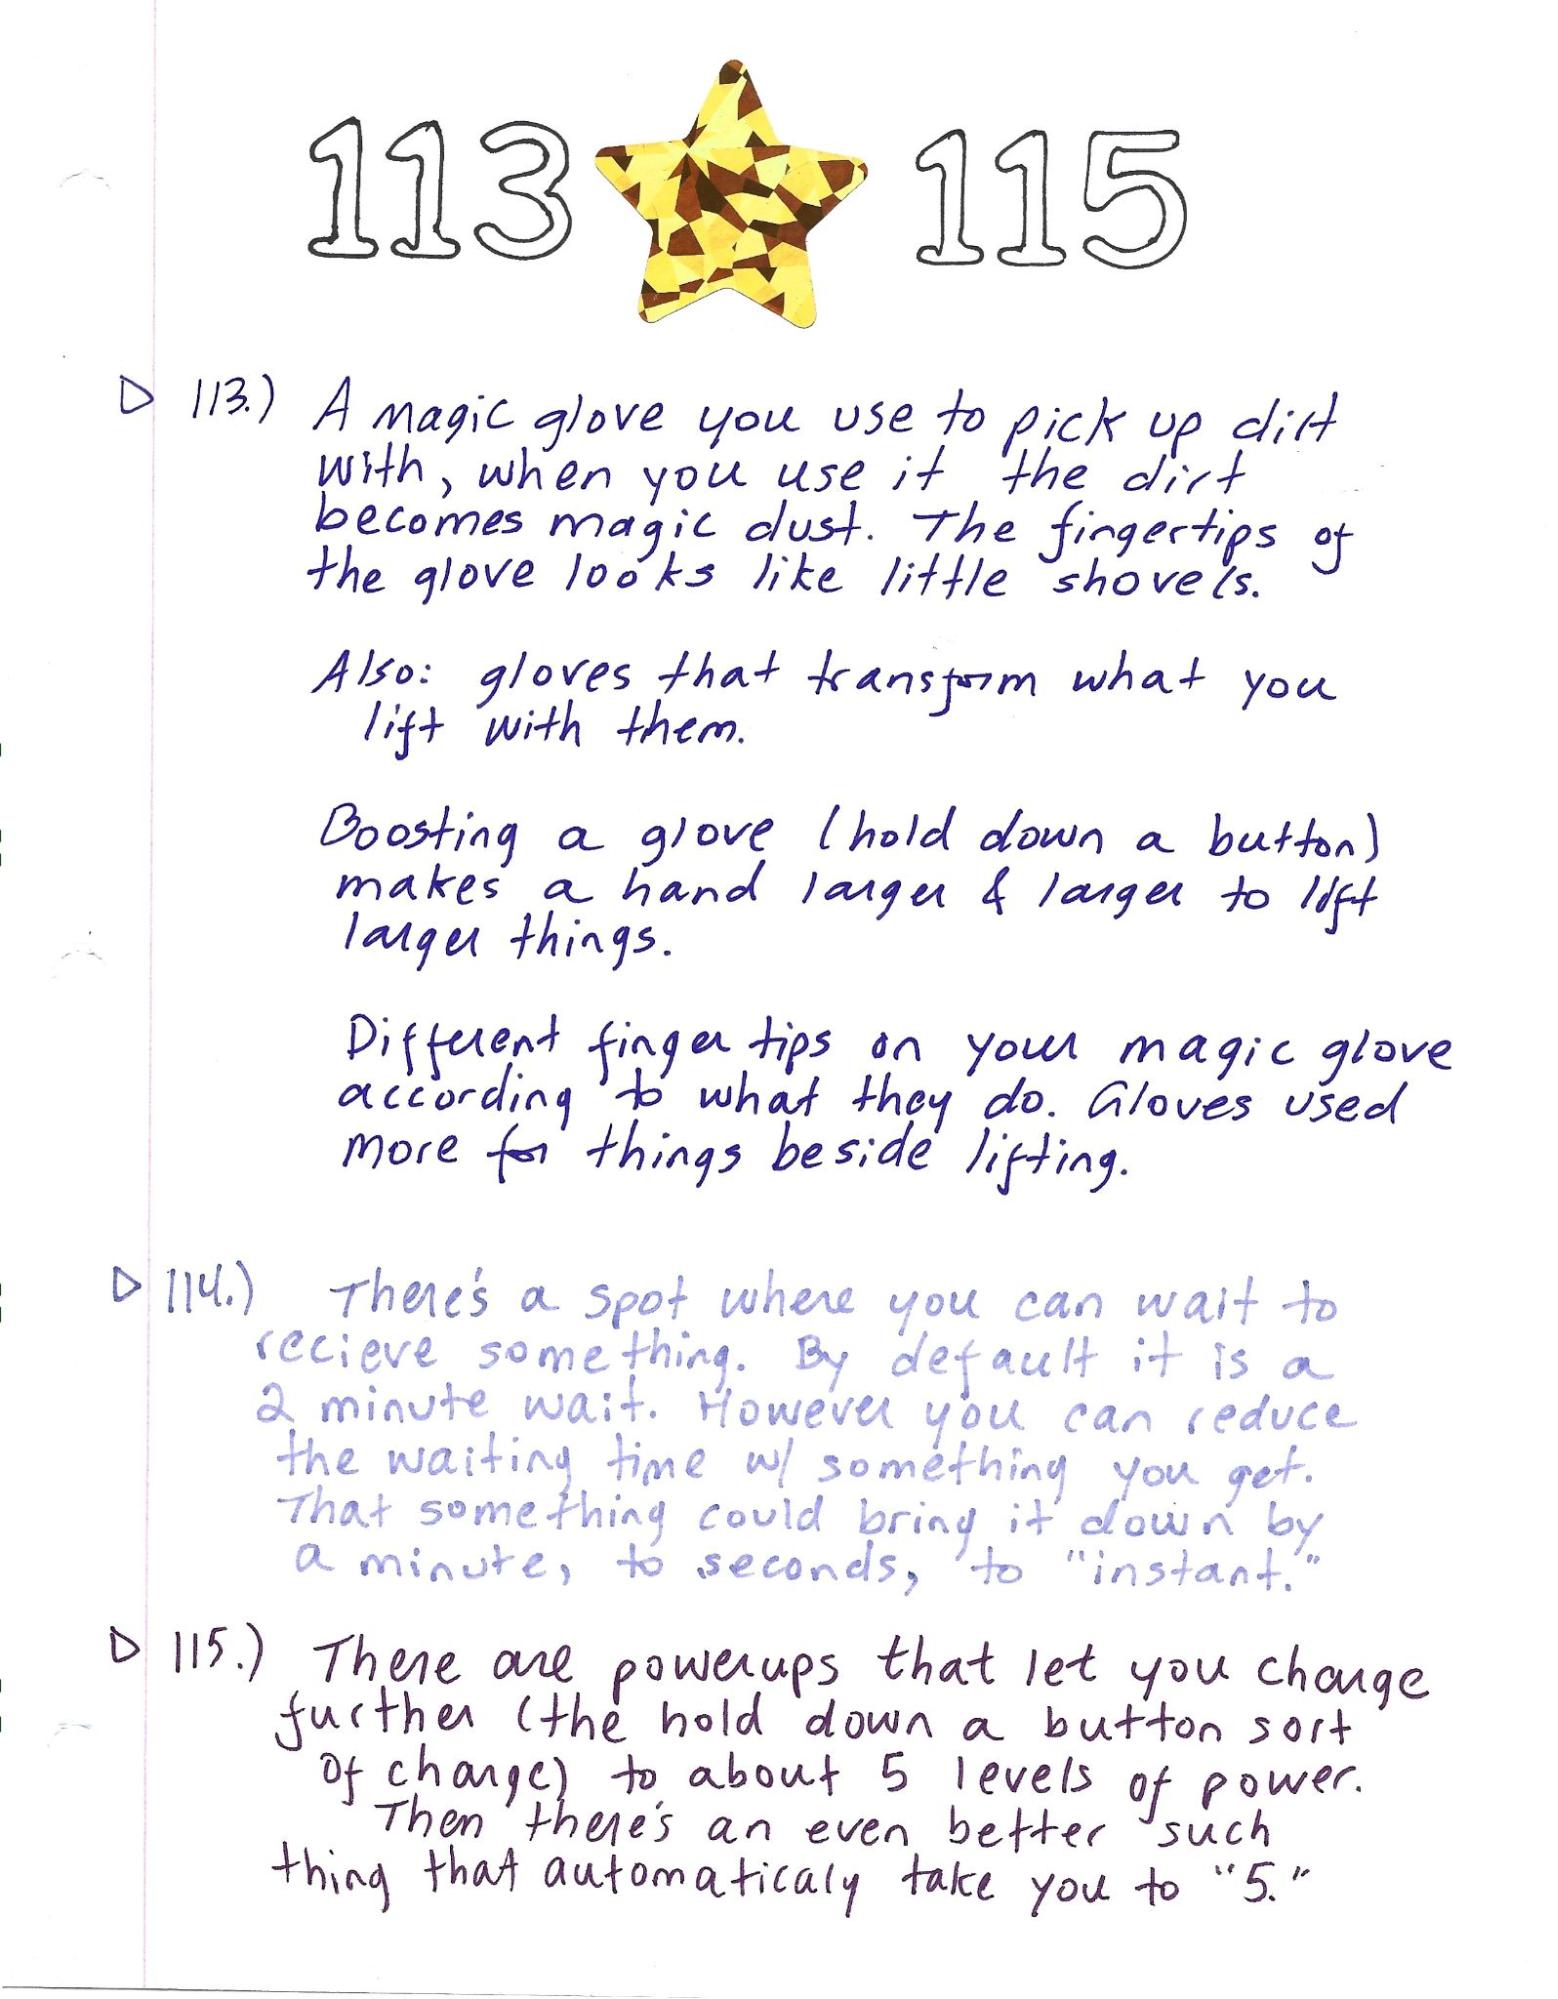 113 115
113.) A magic glove you use to pick up dirt
with, when you use it the dirt
becomes magic dust. The fingertips of
the glove looks like little shovels.
Also: gloves that transform what you
lift with them.
Boosting a glove (hold down a button)
makes a hand larger & larger to lift
larger things.
Different finger tips on your magic glove
according to what they do. Gloves used
more for things beside lifting.
114.) There's a spot where you can wait to
recieve something. By default it is a
2 minute wait. However you can reduce
the waiting time w/ something you get.
That something could bring it down by
a minute, to seconds, to "instant."
115.) There are powerups that let you charge
further (the hold down a button sort
of charge) to about 5 levels of power.
Then there's an even better such
thing that automaticaly take you to "5."